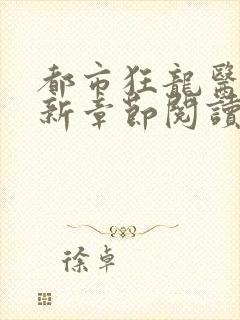 都市狂龍醫
新章節閱讀
徐卓